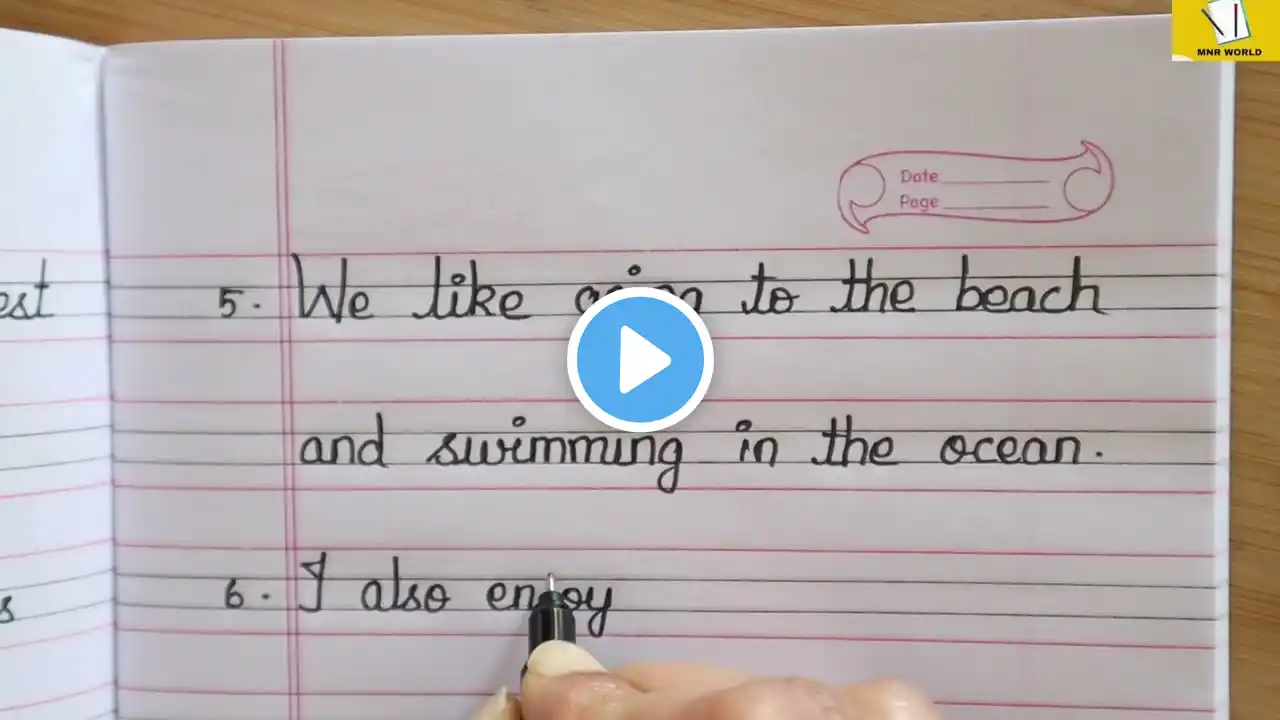 MNR WORLD
Date
Page
est
5. We like going to the beach
and swimming in the ocean.
6. I also enjoy
s